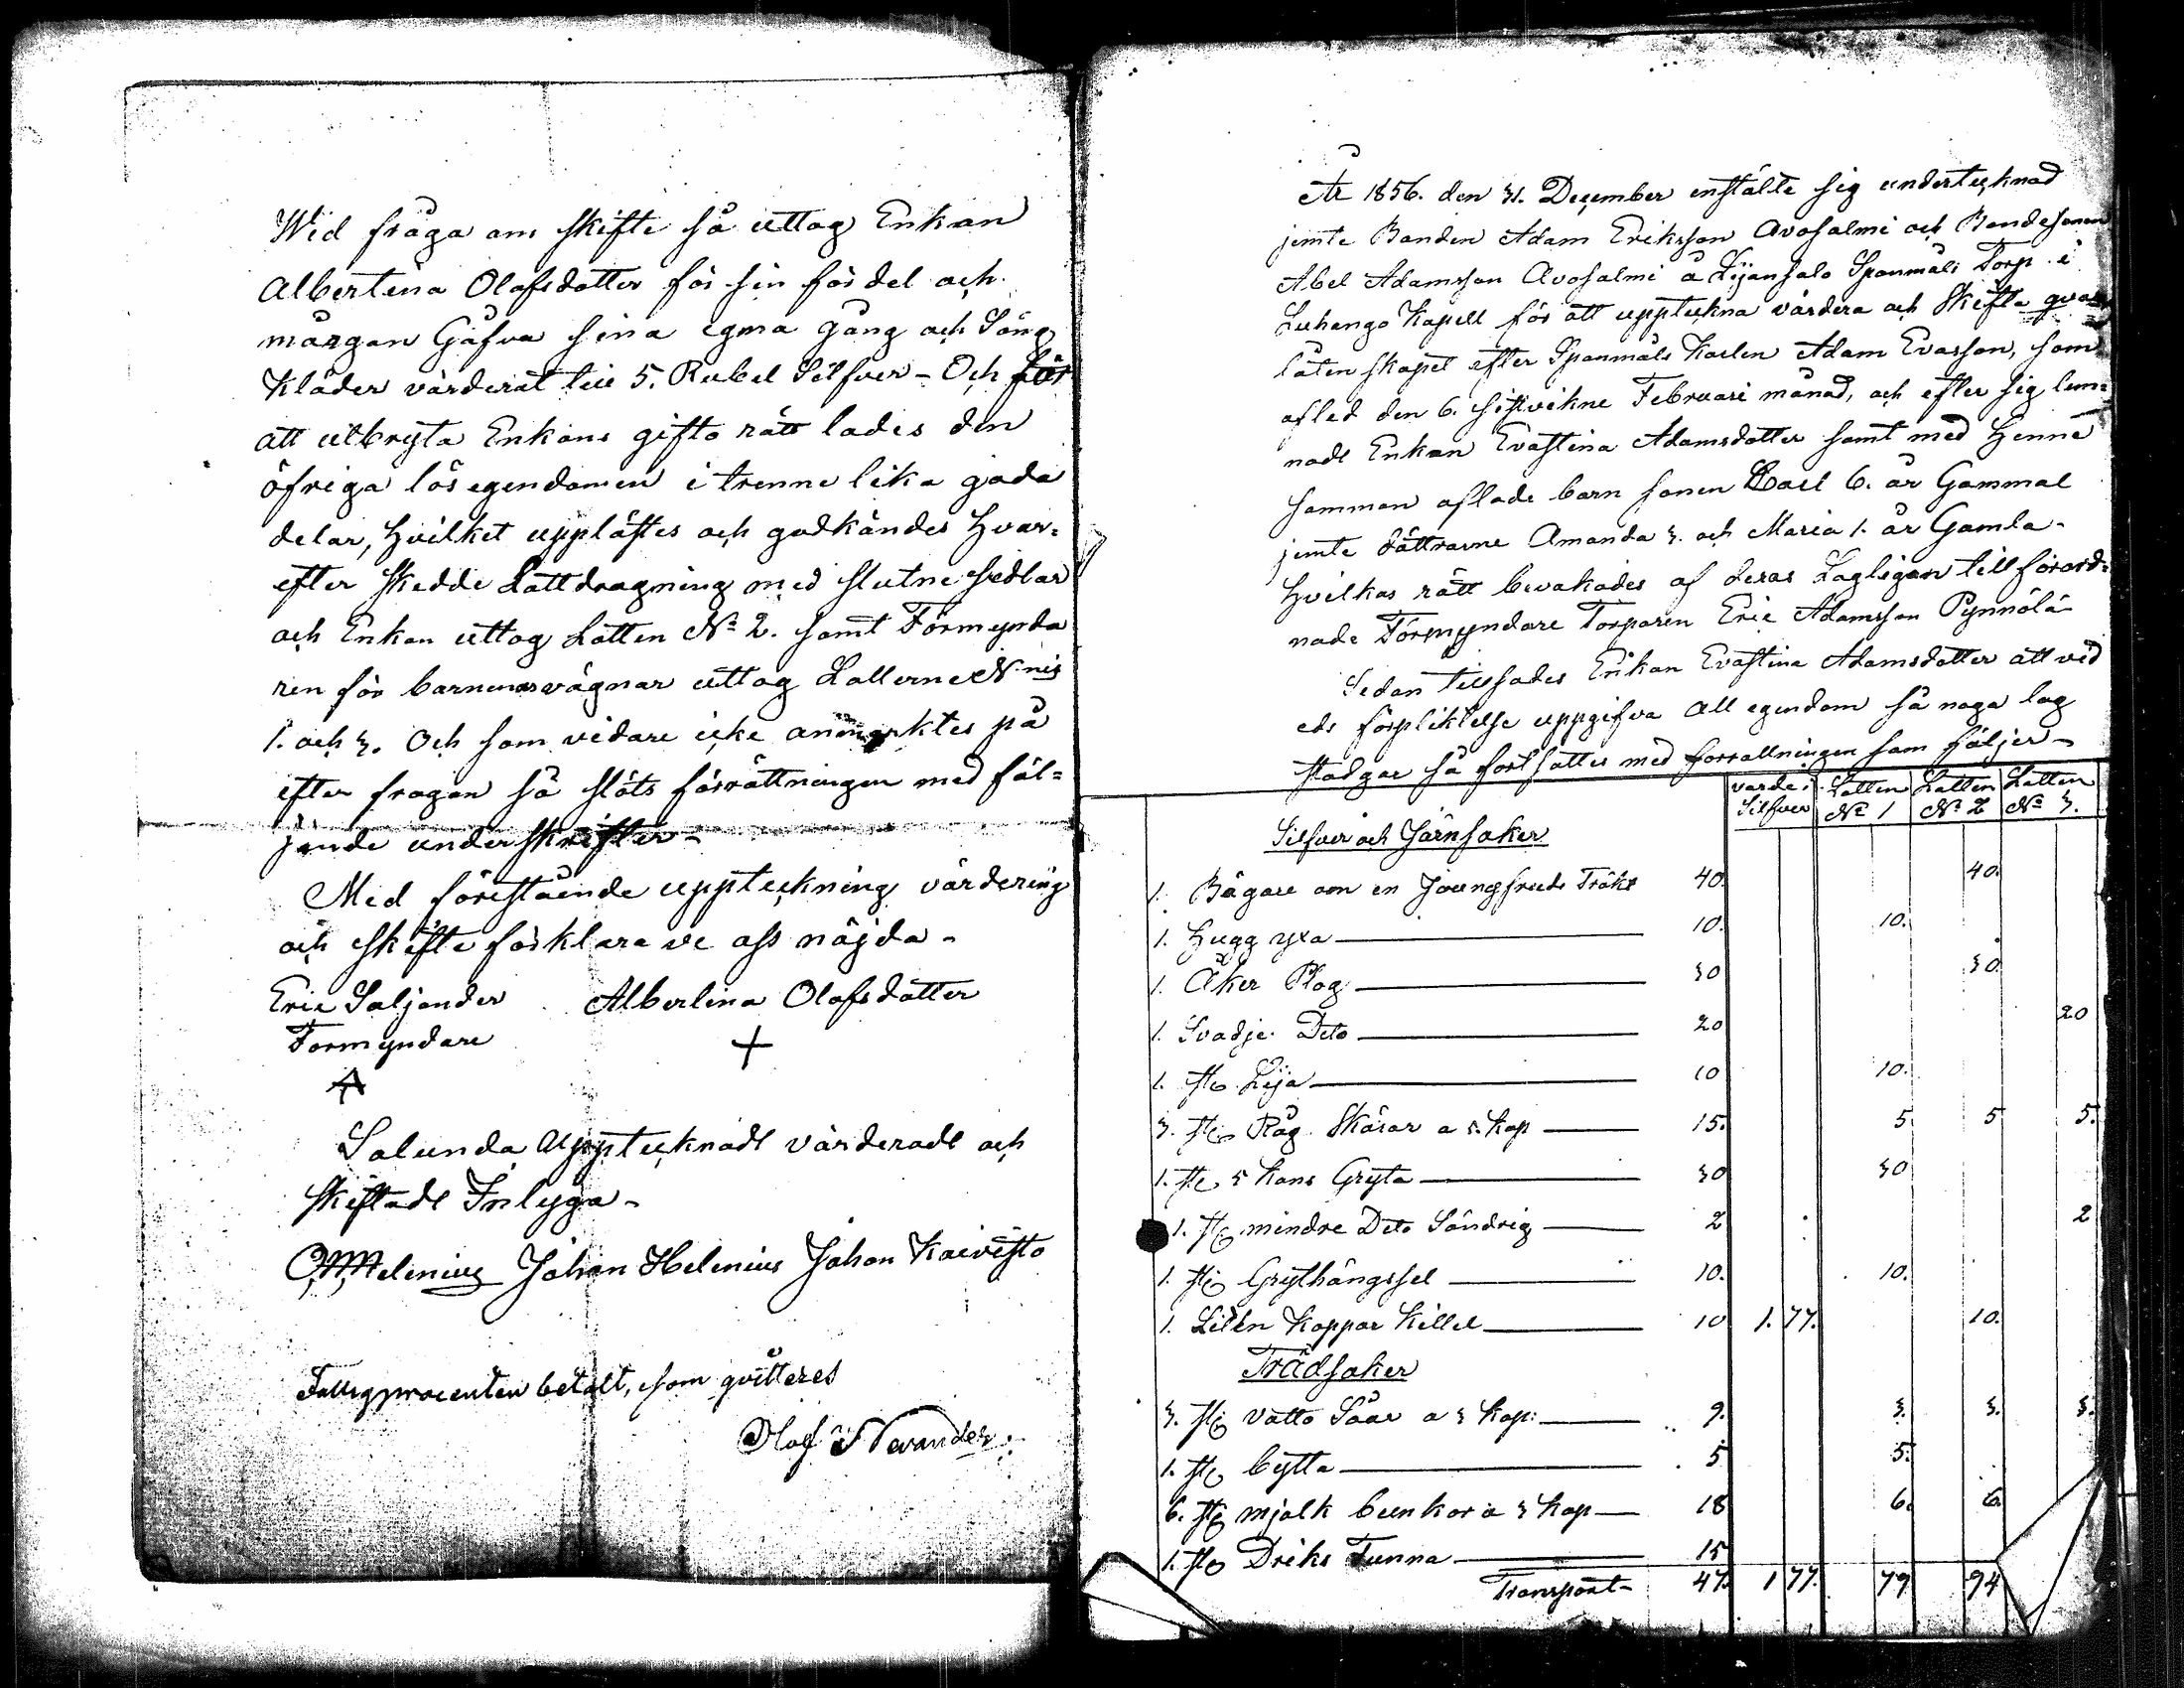 Wid fråga om skifte så uttog Enkan
Albertina Olofsdotter för sin fördel och
morgan Gåfva sina egma gång och Säng
Kläder värderat till 5. Rubel Silfver - Och för
att utbryta Enkans gifto rätt lades den
öfriga lös egendomen i trenne lika goda
delar, hvilket upplästes och godkändes hvar=
efter skedde Lottdragning med slutne sedlar
och Enkan uttog Lotten No 2. samt Förmynda
ren för barnenas vägnar uttog Lotterne N:nis
1. och 3. Och som vidare icke anmärktes på
efter frågan så slöts förrättningen med föl=
jande underskrifter -
Med förestående uppteckning värdering
och skifte förklara vi oss nöjda -
Eric Saljander Albertina Olofsdotter
Formyndare
Salunda Upptecknadt värderadt och
skiftadt Intyga -
Helenius Johan Helenius Johan Kaivisto
Fattigprocenten betalt, som qvitteres
Olof Nevander.
År 1856. den 31. December enstälte sig undertecknad
jemte Bonden Adam Eriksson Avosalmi och Bondesonen
Abel Adamsson Avosalmi å Lijansalo Spanmåls Torp i
Luhango Kapell för att uppteckna värdera och Skifta qvar
låtenskapet efter Spanmåls Karlen Adam Evasson, som
afled den 6. sistvikne Februari månad, och efter sig lem=
nadt Enkan Evastina Adamsdotter samt med Henne
samman aflade barn sonen Karl 6. år Gammal
jemte döttrarne Amanda 3. och Maria 1. år Gamla -
Hvilkas rätt bevakades af deras Lagligen till förord=
nade Förmyndare Torparen Eric Adamsson Pynnölä
Sedan tillsades Enkan Evastina Adamsdotter att vid
eds förpliktelse uppgifva All egendom så noga lag
stadgar så fortsattes med forrattningen som följer -
varde i Silfver Lotten No 1 Lotten No 2 Lotten No 3.
Silfver och Järnsaker
1. Bägare om en Joungfruds Träkt 40. 40.
1. Hugg yxa 10. 10.
1. Åker Plog 30 30.
1. Svadje Deto 20 20
1. st. Lija 10 10.
3. st. Råg Skäror a 5. Kop 15. 5 5 5.
1. st. 5 Kans Gryta 30 30
1. st. mindre Deto Söndrig 2 2
1. st. Grythängssel 10. 10.
1. Liten Koppar Kittel 10 1. 77. 10.
Trädsaker
3. st. vatto Såar a 3 Kop: 9. 3. 3. 3.
1. st. bytta 5 5.
6. st. mjölk bunkor a 3 Kop 18 6. 6.
1. st. Driks Tunna 15
Transport - 47. 1 77. 79 94